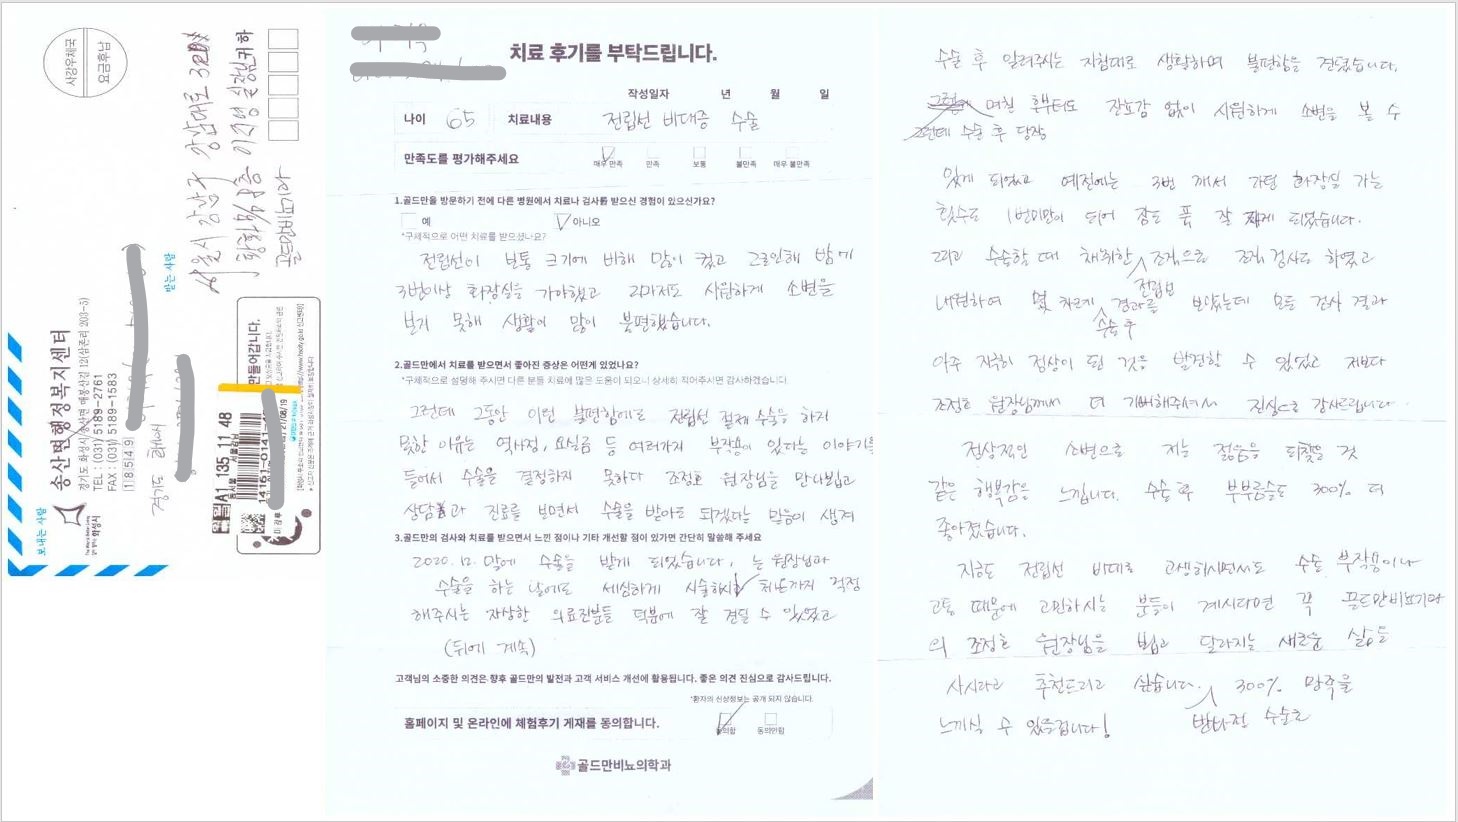 사강우체국
요금후납
보내는 사람
화성시
송산면행정복지센터
경기도 화성시 송산면 매봉산길 12(삼존리 203-3)
TEL : (031) 5189-2761
FAX : (031) 5189-1583
18549
경기도
받는 사람
서울시 강남구 강남대로
이지영 실장님 귀하
골드만비뇨기과
만들어갑니다.
A1 135 11 48
치료 후기를 부탁드립니다.
작성일자 년 월 일
나이 65 치료내용 전립선 비대증 수술
만족도를 평가해주세요
매우 만족 만족 보통 불만족 매우 불만족
1.골드만을 방문하기 전에 다른 병원에서 치료나 검사를 받으신 경험이 있으신가요?
예 아니오
*구체적으로 어떤 치료를 받으셨나요?
전립선이 보통 크기에 비해 많이 컸고 그로인해 밤에
3번이상 화장실을 가야했고 그마저도 시원하게 소변을
보지 못해 생활이 많이 불편했습니다.
2.골드만에서 치료를 받으면서 좋아진 증상은 어떻게 있었나요?
*구체적으로 설명해 주시면 다른 분들 치료에 많은 도움이 되오니 상세히 적어주시면 감사하겠습니다.
그런데 그동안 이런 불편함에도 전립선 절제 수술을 하지
못한 이유는 역사정, 요실금 등 여러가지 부작용이 있다는 이야기를
들어서 수술을 결정하지 못하다 조정호 원장님을 만나뵙고
상담과 진료를 보면서 수술을 받아도 되겠다는 믿음이 생겨
3.골드만의 검사와 치료를 받으면서 느낀 점이나 기타 개선할 점이 있가면 간단히 말씀해 주세요
2020.12. 말에 수술을 받게 되었습니다. 는 원장님과
수술을 하는 날에도 세심하게 시술하시 처는까지 걱정
해주시는 자상한 의료진분들 덕분에 잘 견딜 수 있었고
(뒤에 계속)
고객님의 소중한 의견은 향후 골드만의 발전과 고객 서비스 개선에 활용됩니다. 좋은 의견 진심으로 감사드립니다.
*환자의 신상정보는 공개 되지 않습니다.
홈페이지 및 온라인에 체험후기 게재를 동의합니다.
동의함 동의안함
골드만비뇨의학과
수술 후 알려주시는 지침대로 생활하며 불편함을 견뎠습니다.
며친 후부터는 잔뇨감 없이 시원하게 소변을 볼 수
그런데 수술 후 당장
있게 되었고 예전에는 3번 깨서 가던 화장실 가는
횟수도 1번미만이 되어 잠도 푹 잘 자게 되었습니다.
그리고 수술할 때 채취한 조직으로 조직 검사도 하였고
전립선
내원하여 몇 차례 경과를 보았는데 모든 검사 결과
수술 후
아주 지극히 정상이 된 것을 발견할 수 있었고 저보다
조정호 원장님께서 더 기뻐해주셔서 진심으로 감사드립니다.
정상적인 소변으로 저는 젊음을 되찾은 것
같은 행복감을 느낍니다. 수술 후 부부금슬도 300% 더
좋아졌습니다.
지금도 전립선 비대로 고생하시면서도 수술 부작용이나
고통 때문에 고민하시는 분들이 계시다면 꼭 골드만비뇨기과
의 조정호 원장님을 뵙고 달라지는 새로운 삶을
사시라고 추천드리고 싶습니다. 300% 만족을
느끼실 수 있을겁니다!